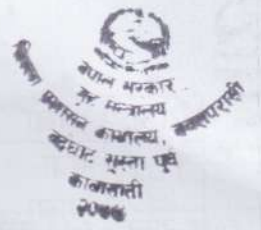 नेपाल सरकार
गृह मन्त्रालय
जिल्ला प्रशासन कार्यालय, नवलपरासी
बर्दघाट सुस्ता पूर्व
कावासोती